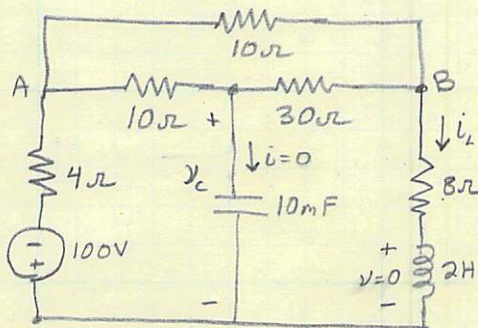 10Ω
A 10Ω + 30Ω B
↓ i=0 ↓ i_L
4Ω v_c 8Ω
10mF
- + 100V + v=0 - 2H
-